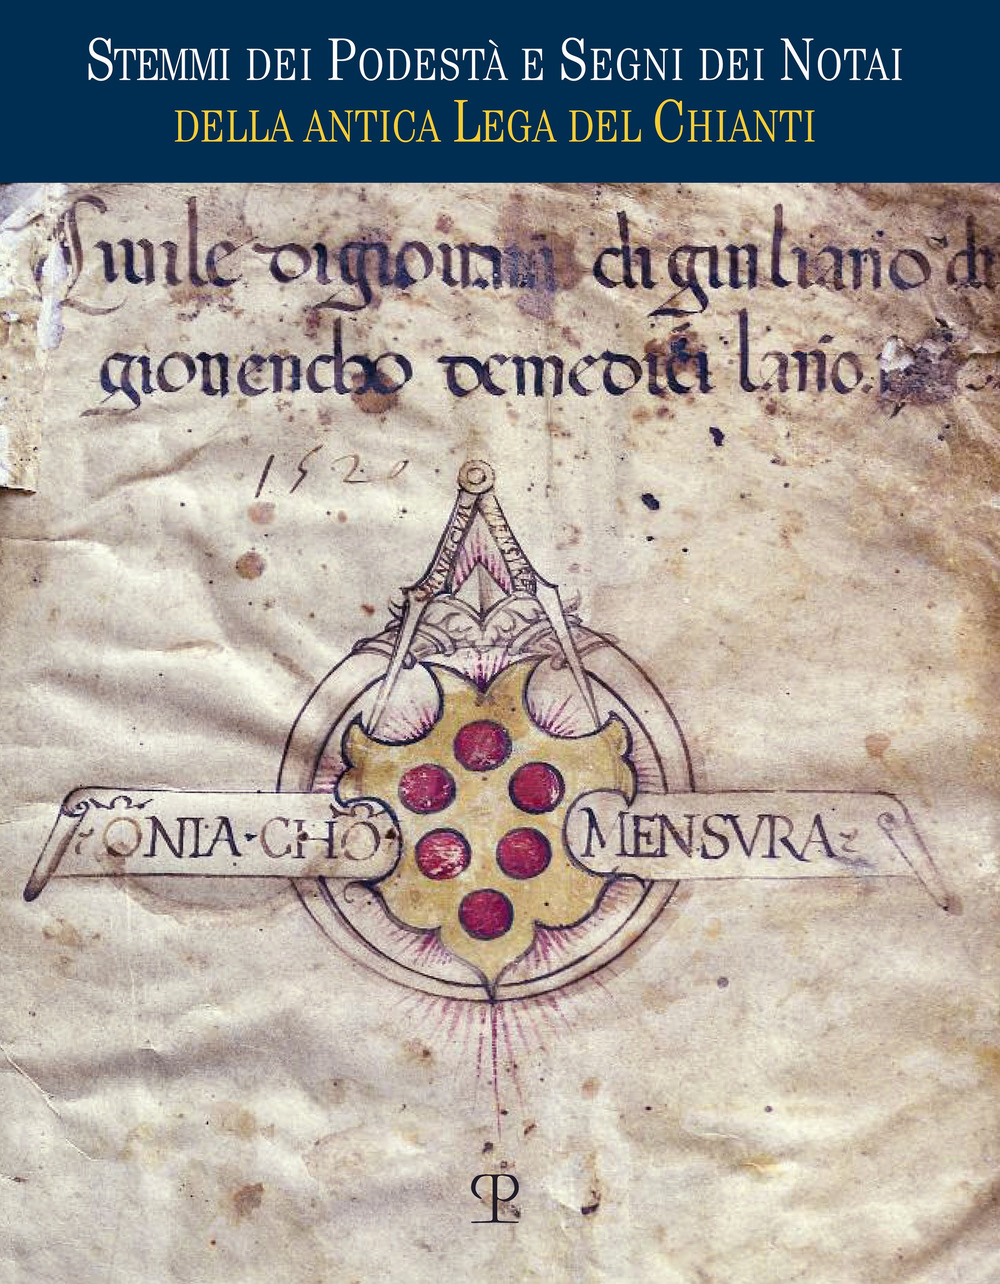 STEMMI DEI PODESTÀ E SEGNI DEI NOTAI
DELLA ANTICA LEGA DEL CHIANTI
Civile di giovanni di giuliano di
giovencho de medici lanno
1520
ONIA · CHO
MENSVRA